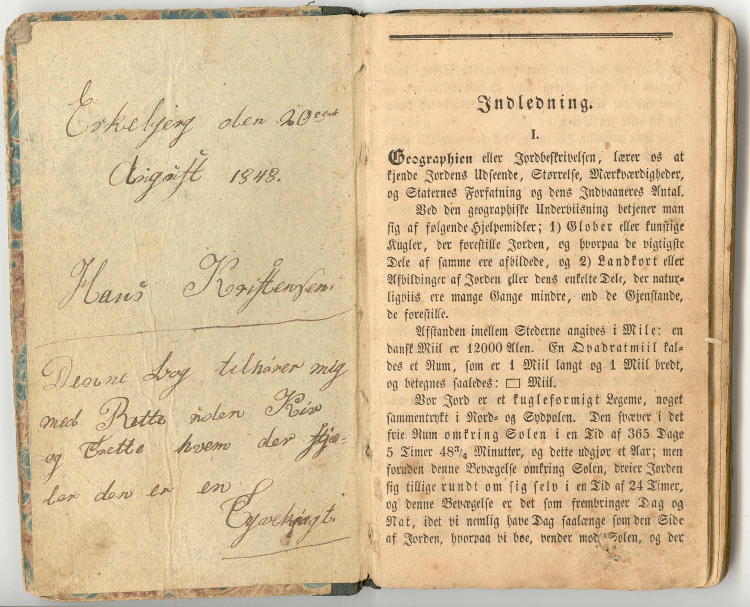 Erkebjerg den 20
August 1848.
Hans Kristensen.
Denne bog tilhører mig
med Rette uden Kiv
og Trette hvem der stjæ-
ler den er en
Tyveknægt.
Indledning.
I.
Geographien eller Jordbeskrivelsen, lærer os at
kjende Jordens Udseende, Størrelse, Mærkværdigheder,
og Staternes Forfatning og dens Indvaaneres Antal.
Ved den geographiske Underviisning betjener man
sig af følgende Hjelpemidler; 1) Glober eller kunstige
Kugler, der forestille Jorden, og hvorpaa de vigtigste
Dele af samme ere afbildede, og 2) Landkort eller
Afbildinger af Jorden eller dens enkelte Dele, der natur-
ligviis ere mange Gange mindre, end de Gjenstande,
de forestille.
Afstanden imellem Stederne angives i Mile: en
dansk Miil er 12000 Alen. En Qvadratmiil kal-
des et Rum, som er 1 Miil langt og 1 Miil bredt,
og betegnes saaledes: □ Miil.
Vor Jord er et kugleformigt Legeme, noget
sammentrykt i Nord- og Sydpolen. Den svæver i det
frie Rum omkring Solen i en Tid af 365 Dage
5 Timer 48 Minutter, og dette udgjør et Aar; men
foruden denne Bevægelse omkring Solen, dreier Jorden
sig tillige rundt om sig selv i en Tid af 24 Timer,
og denne Bevægelse er det som frembringer Dag og
Nat, idet vi nemlig have Dag saalænge som den Side
af Jorden, hvorpaa vi boe, vender mod Solen, og der